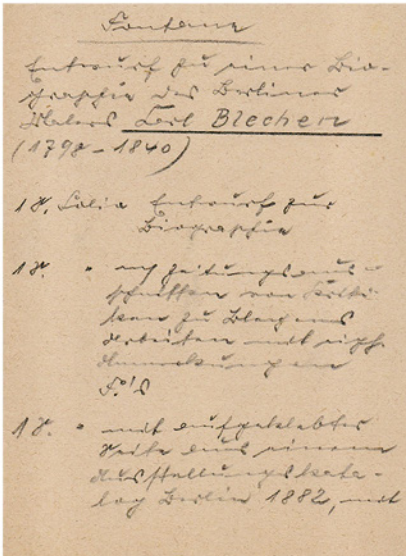 Fontane
Entwurf zu einer Bio-
graphie des Berliner
Malers Carl Blechen
(1798-1840)
18. Folia Entwurf zur
Biographie
18. " Zeitungsaus-
schnitten von Kriti-
ken zu Blechens
Arbeiten mit
Anmerkungen
F.'s
18. " mit aufgeklebter
Seite aus einem
Ausstellungskata-
log Berlin 1882, mit